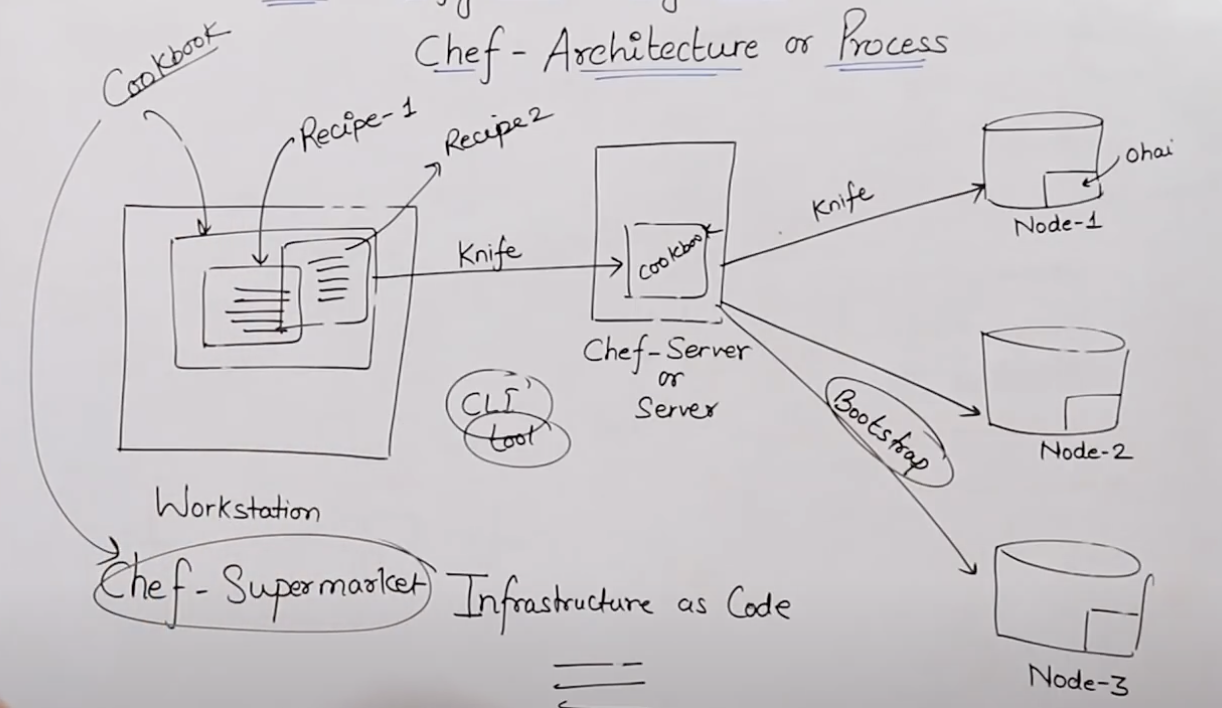 Chef - Architecture or Process
Cookbook
Recipe-1
Recipe 2
Knife
Cookbook
Knife
Ohai
Node-1
Chef-Server
or
Server
CLI
tool
Bootstrap
Node-2
Workstation
Chef-Supermarket
Infrastructure as Code
Node-3